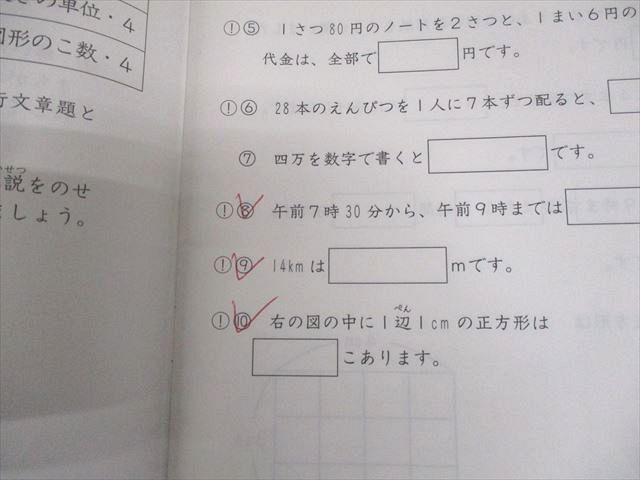 さの単位・4
図形のこ数・4
行文章題と
せつ
説をのせ
ましょう。
!⑤ 1さつ80円のノートを2さつと、1まい6円の
代金は、全部で 円です。
!⑥ 28本のえんぴつを1人に7本ずつ配ると、
⑦ 四万を数字で書くと です。
!⑧ 午前7時30分から、午前9時までは
!⑨ 14kmは mです。
ぺん
!⑩ 右の図の中に1辺1cmの正方形は
こあります。